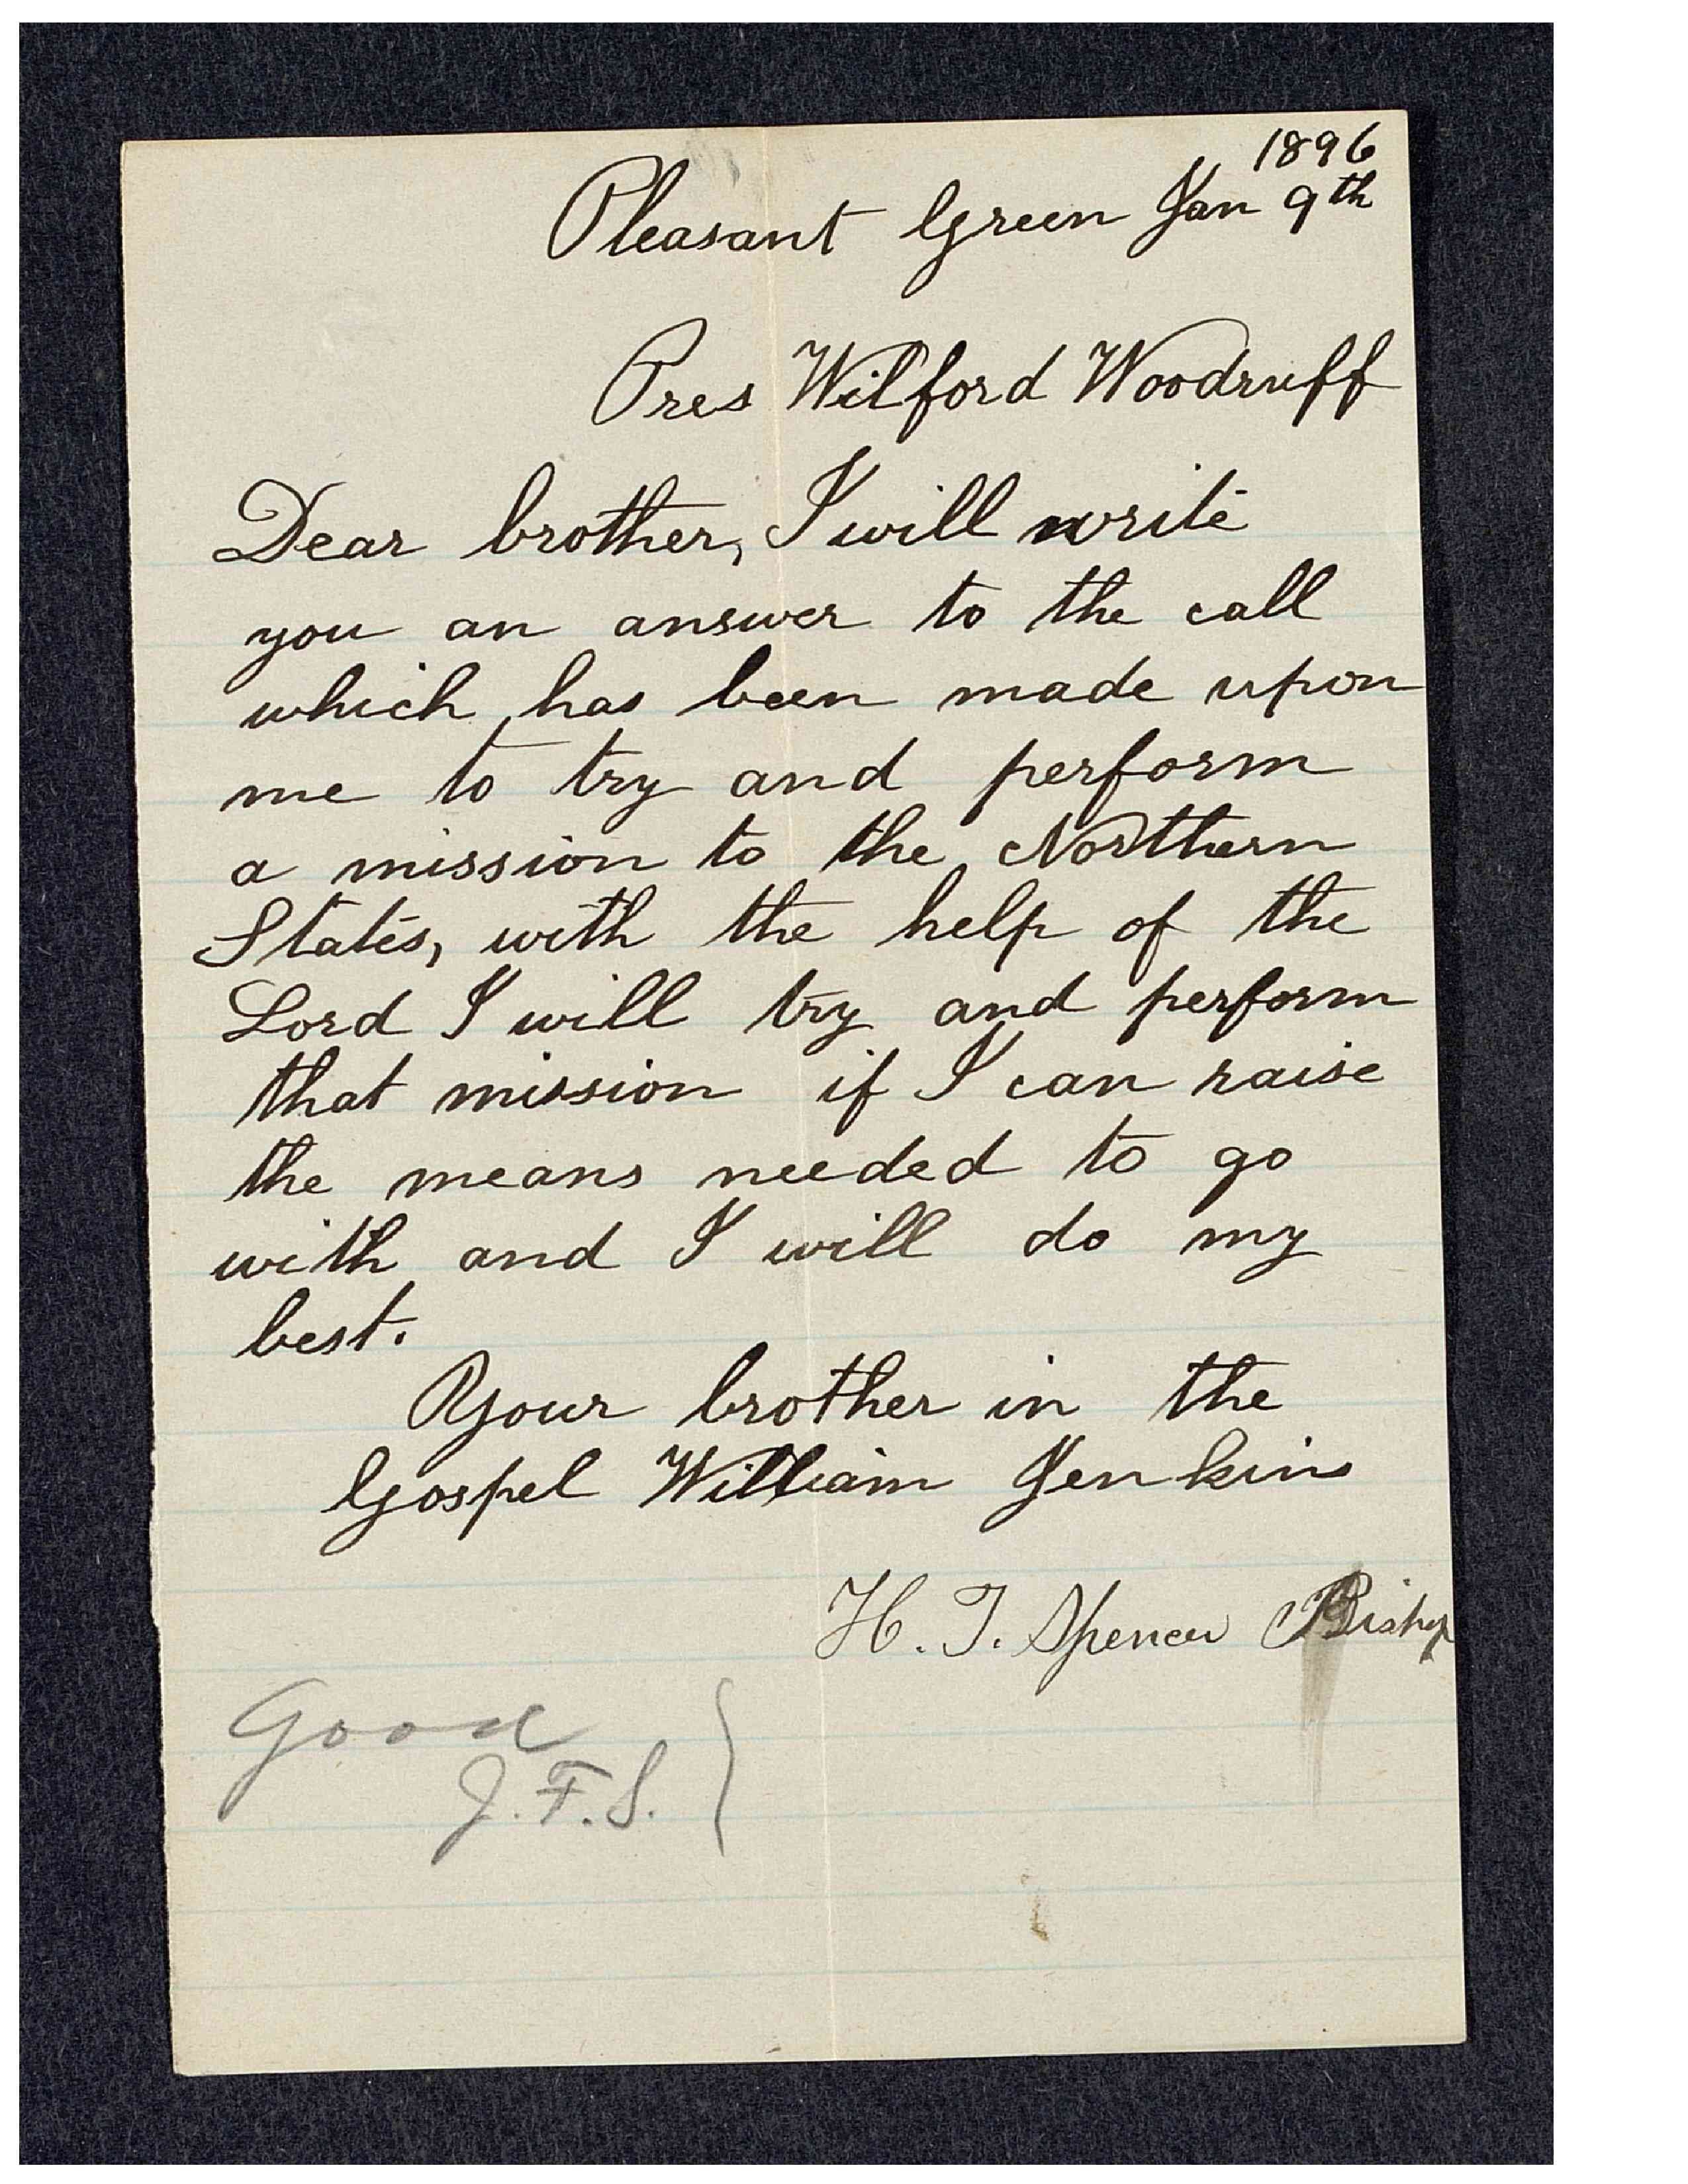 1896
Pleasant Green Jan 9th
Pres Wilford Woodruff
Dear brother, I will write
you an answer to the call
which has been made upon
me to try and perform
a mission to the Northern
States, with the help of the
Lord I will try and perform
that mission if I can raise
the means needed to go
with and I will do my
best.
Your brother in the
Gospel William Jenkins
H. T. Spencer Bishop
Good
J. F. S. }